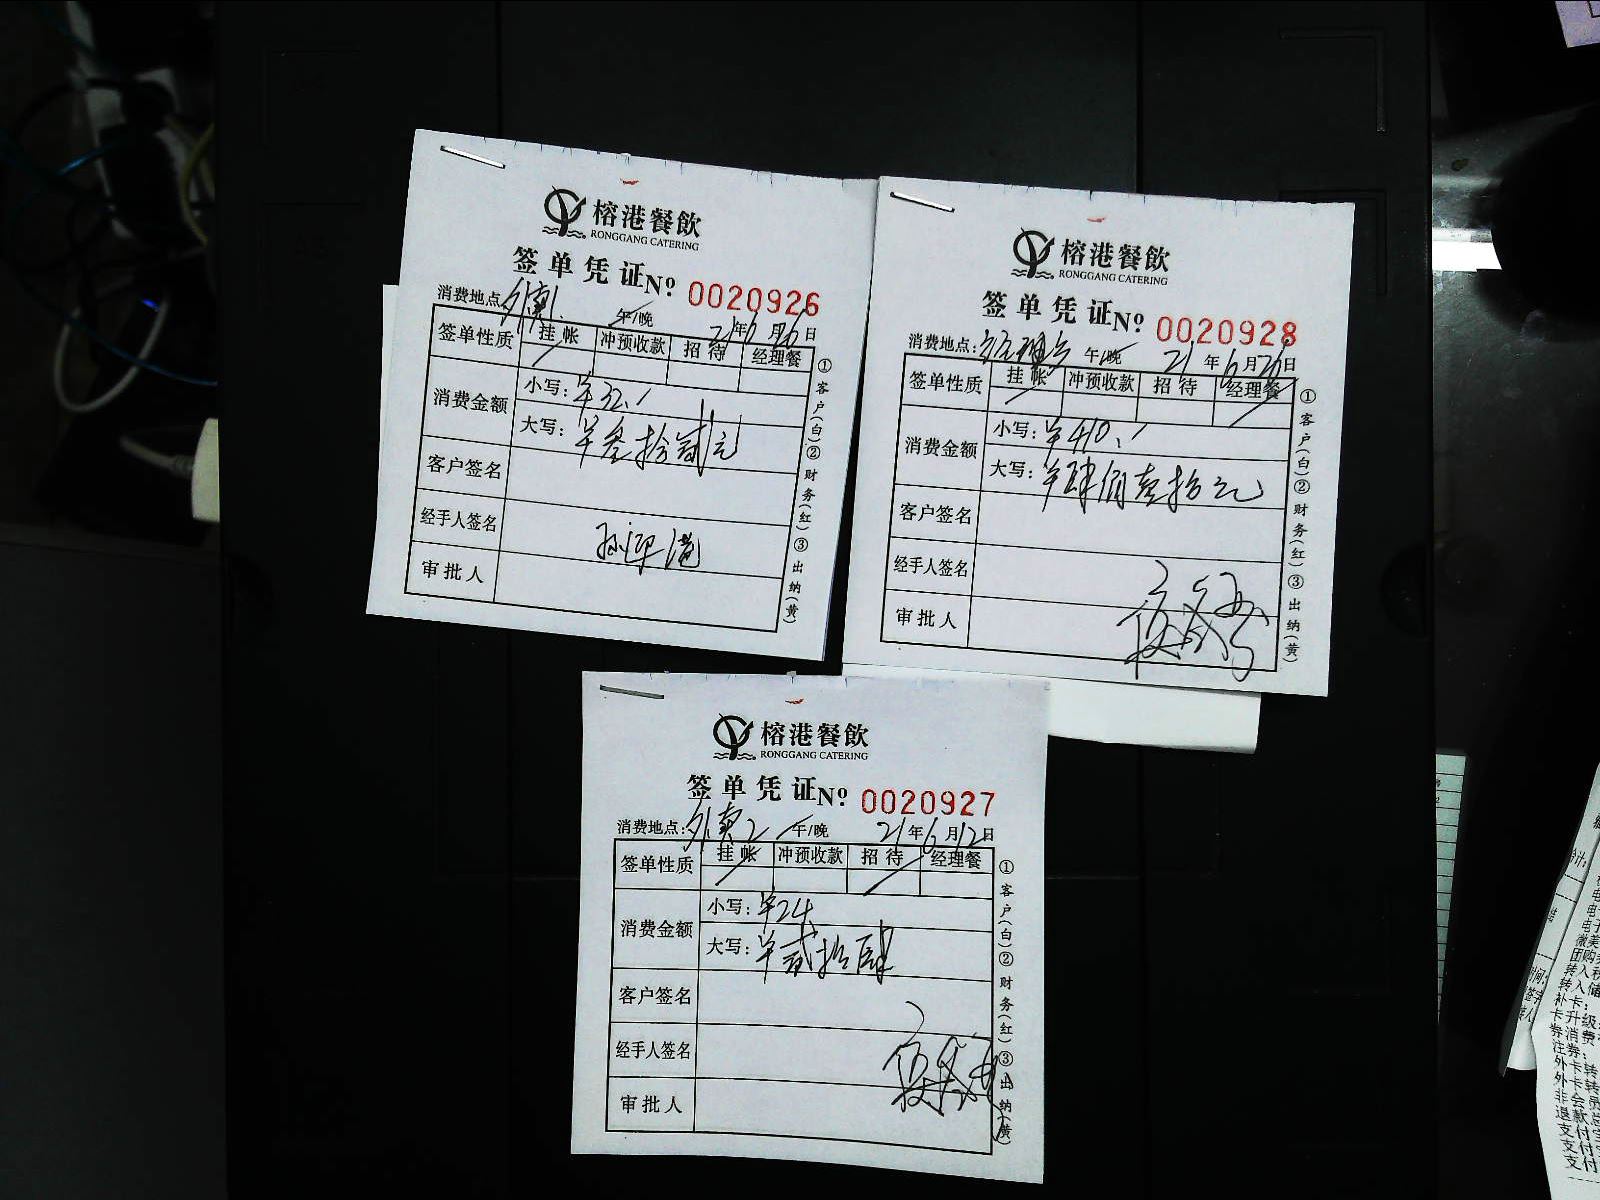 榕港餐飲
RONGGANG CATERING
签单凭证 Nº 0020926
消费地点: 外卖1 午/晚 21年6月26日
签单性质 挂帐 冲预收款 招待 经理餐
消费金额 小写: ¥32.
大写: ¥叁拾贰元
客户签名
经手人签名
审批人
①客户(白)②财务(红)③出纳(黄)
榕港餐飲
RONGGANG CATERING
签单凭证 Nº 0020928
消费地点: 午/晚 21年6月26日
签单性质 挂帐 冲预收款 招待 经理餐
消费金额 小写: ¥410.
大写: ¥肆佰壹拾元
客户签名
经手人签名
审批人
①客户(白)②财务(红)③出纳(黄)
榕港餐飲
RONGGANG CATERING
签单凭证 Nº 0020927
消费地点: 外卖2 午/晚 21年6月12日
签单性质 挂帐 冲预收款 招待 经理餐
消费金额 小写: ¥24
大写: ¥贰拾肆
客户签名
经手人签名
审批人
①客户(白)②财务(红)③出纳(黄)
团购
转入
转入储
补卡:
卡升级
券消费
注券:
外卡转
外卡转
非会员
退款总
支付宝
支付
支付